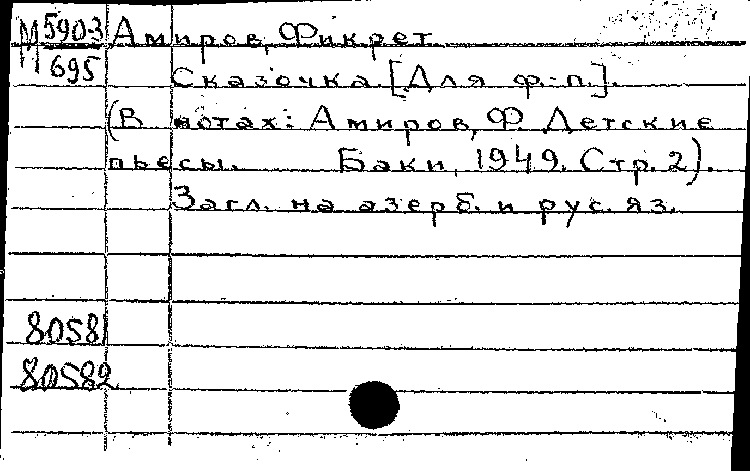 М 5903 Амиров, Фикрет
695
Сказочка. [Для ф.-п.].
(В нотах: Амиров, Ф. Детские
пьесы. Баку, 1949. Стр. 2).
Загл. на азерб. и рус. яз.
80581
80582